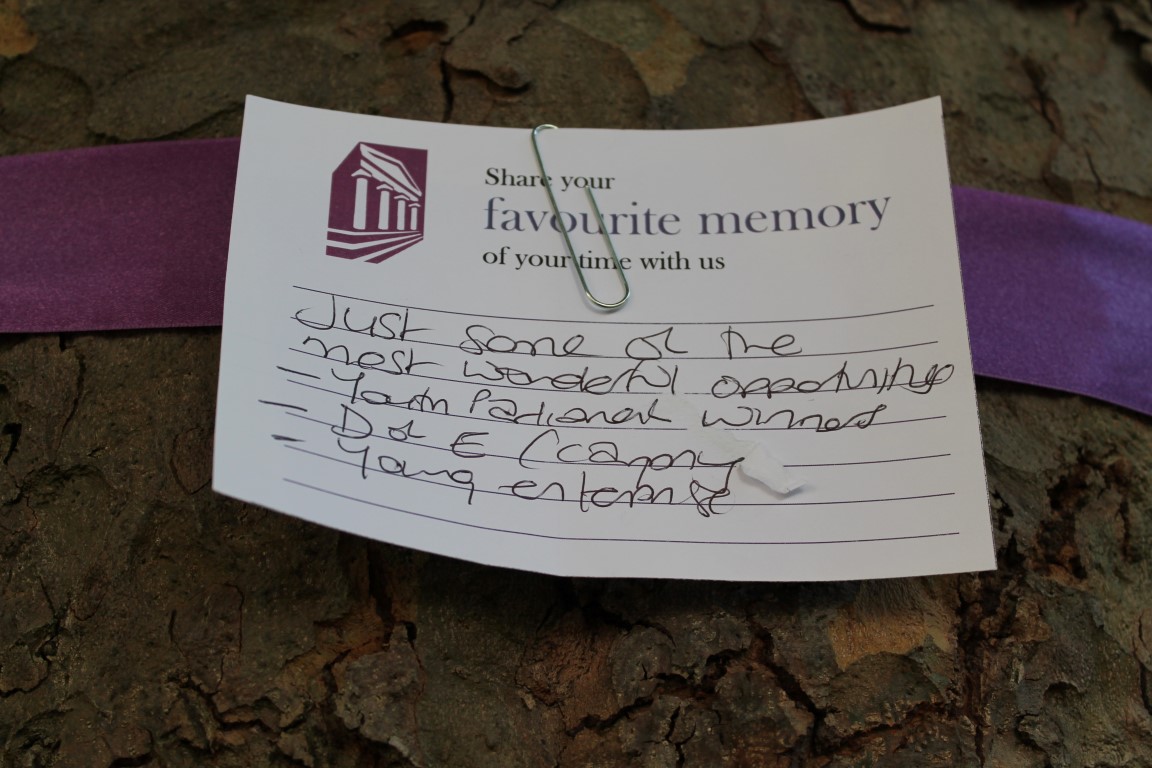 Share your
favourite memory
of your time with us
Just some of the
most wonderful opportunities
- Youth Parliament winners
- D of E (canopy
- Young enterprise